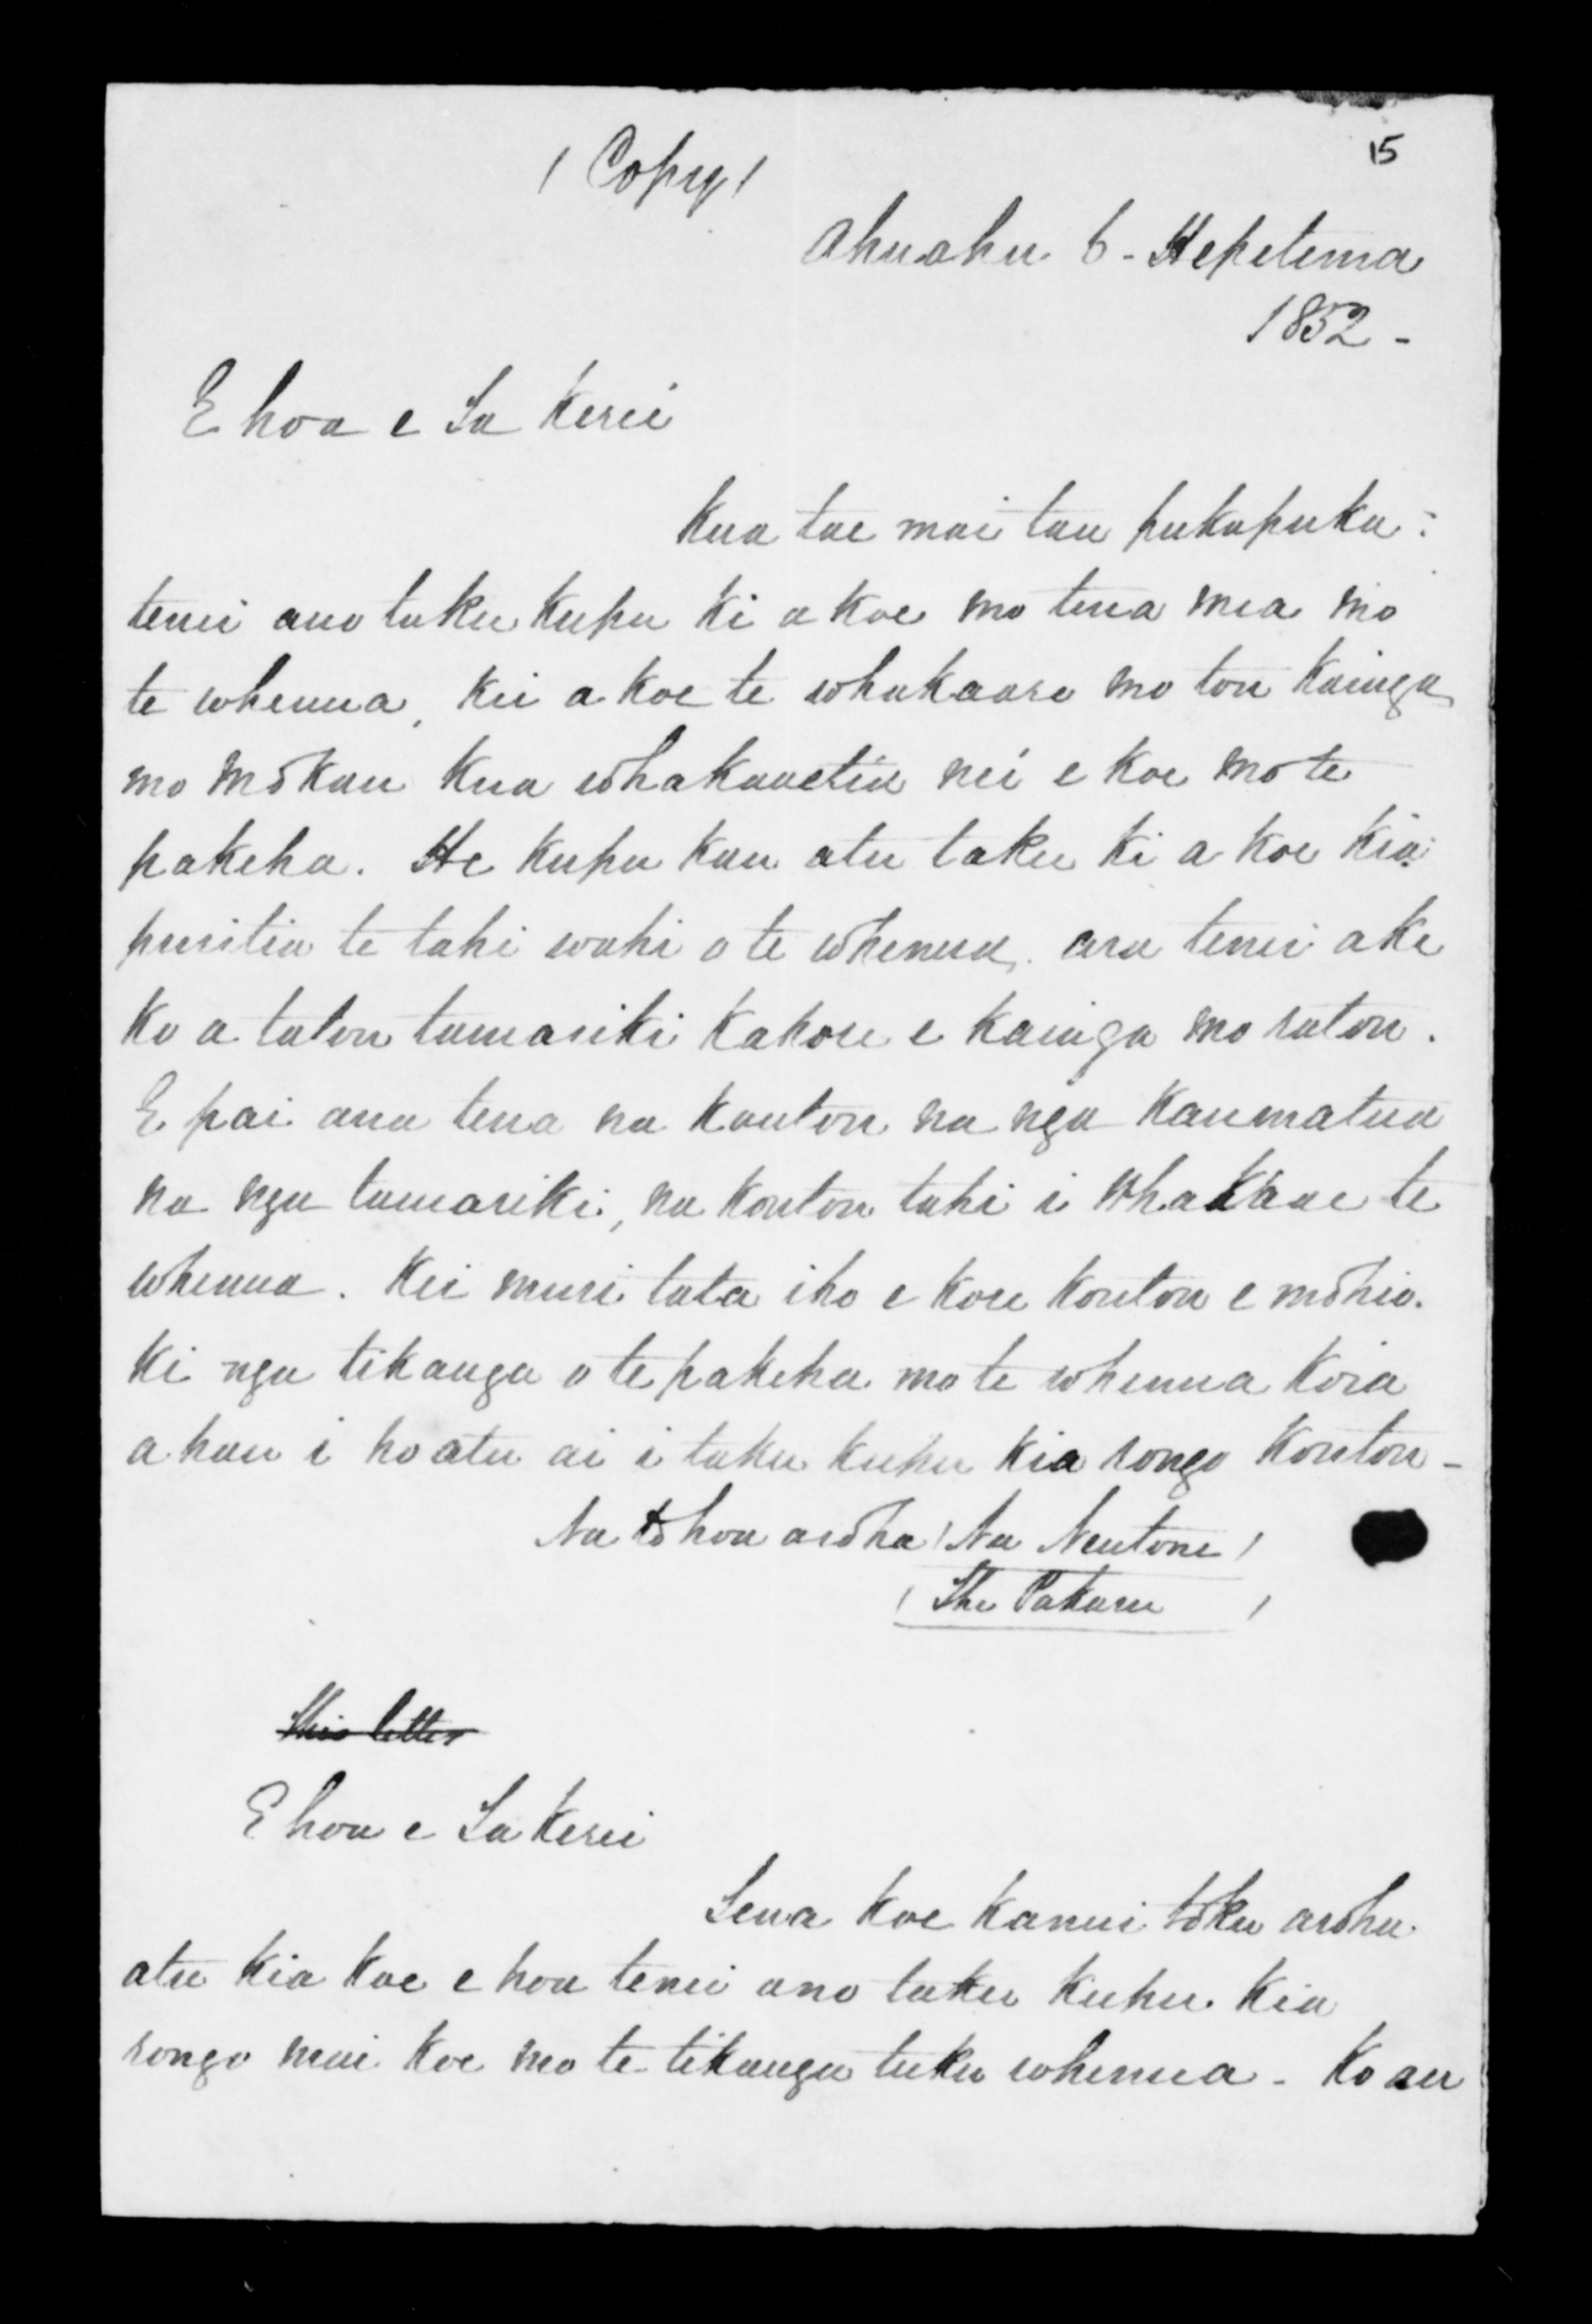 (Copy)
15
Ahuahu 6 - Hepetema
1852 -
E hoa e Ta Kerei
Kua tae mai tau pukapuka:
tenei ano taku kupu ki a koe mo tena mea mo
te whenua, kei a koe te whakaaro mo tou kainga
mo Mokau kua whakaaetia nei e koe mo te
pakeha. He kupu kau atu taku ki a koe kia
puritia te tahi wahi o te whenua, ara tenei ake
ko a tatou tamariki kahore e kainga mo ratou.
E pai ana tena na koutou na nga kaumatua
na nga tamariki, na koutou tahi i whakaae te
whenua. Kei muri tata iho e kore koutou e mohio
ki nga tikanga o te pakeha mo te whenua koia
a hau i ho atu ai i taku kupu kia rongo koutou -
Na to hoa aroha (Na Neutone)
(The Pakaru )
This letter
E hoa e Ta Kerei
Tena koe kanui toku aroha
atu kia koe e hoa tenei ano taku kupu kia
rongo mai koe mo te tikanga tuku whenua - Ko au